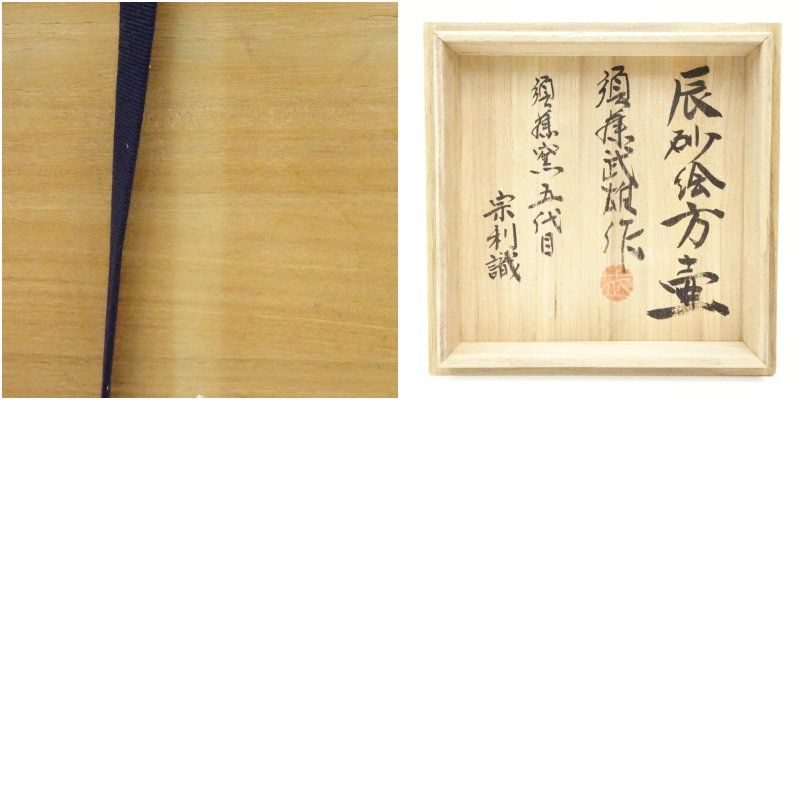 辰砂絵方壷
須藤武雄作
須藤窯五代目
宗利識